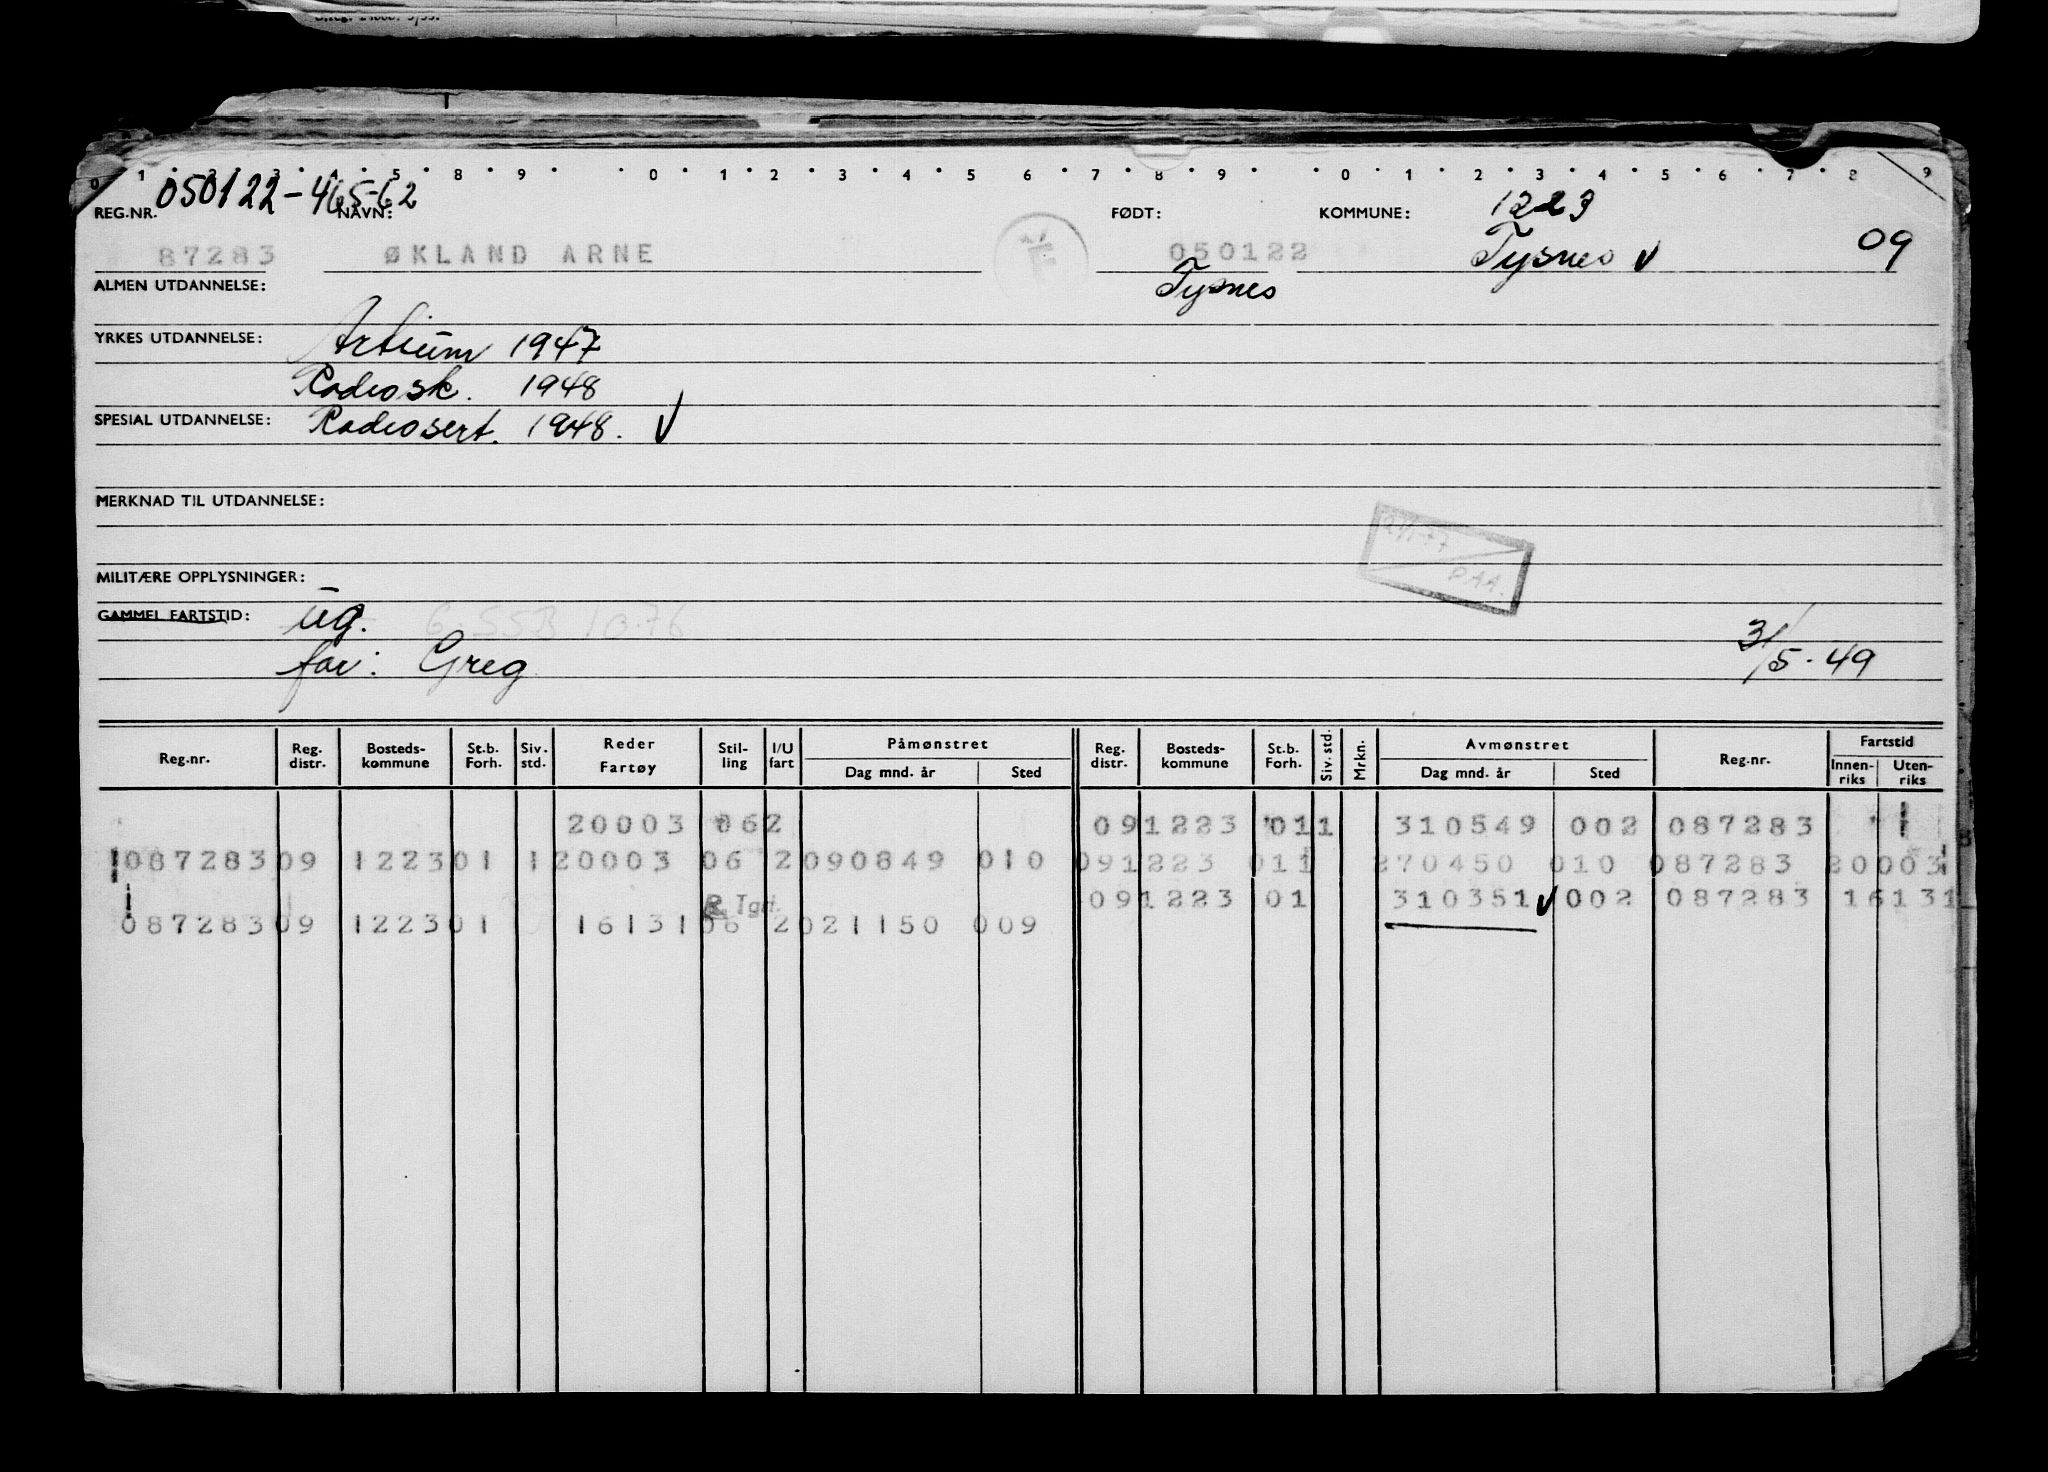 0 1 2 3 4 5 8 9 0 1 2 3 4 5 6 7 8 9 0 1 2 3 4 5 6 7 8 9
REG.NR. 050122-465-62 NAVN: FØDT: KOMMUNE: 1223
87283 ØKLAND ARNE 050122 Tysnes √ 09
Tysnes
ALMEN UTDANNELSE:
YRKES UTDANNELSE: Artium 1947
Radiosk. 1948
SPESIAL UTDANNELSE: Radiosert. 1948. √
MERKNAD TIL UTDANNELSE:
21/1-77
DAA.
MILITÆRE OPPLYSNINGER:
GAMMEL FARTSTID: ug.
far: Greg 31/5-49
Reg.nr. Reg. distr. Bosteds-kommune St.b. Forh. Siv. std. Reder Fartøy Stil-ling I/U fart Påmønstret Dag mnd. år Sted Reg. distr. Bosteds-kommune St.b. Forh. Siv. std. Mrkn. Avmønstret Dag mnd. år Sted Reg.nr. Fartstid Innen-riks Uten-riks
20003 062 091223 011 310549 002 087283
087283 09 1223 01 1 20003 06 2 090849 010 091223 011 270450 010 087283 20003
R.Tgr. 091223 01 310351 √ 002 087283 16131
087283 09 1223 01 16131 06 2 021150 009